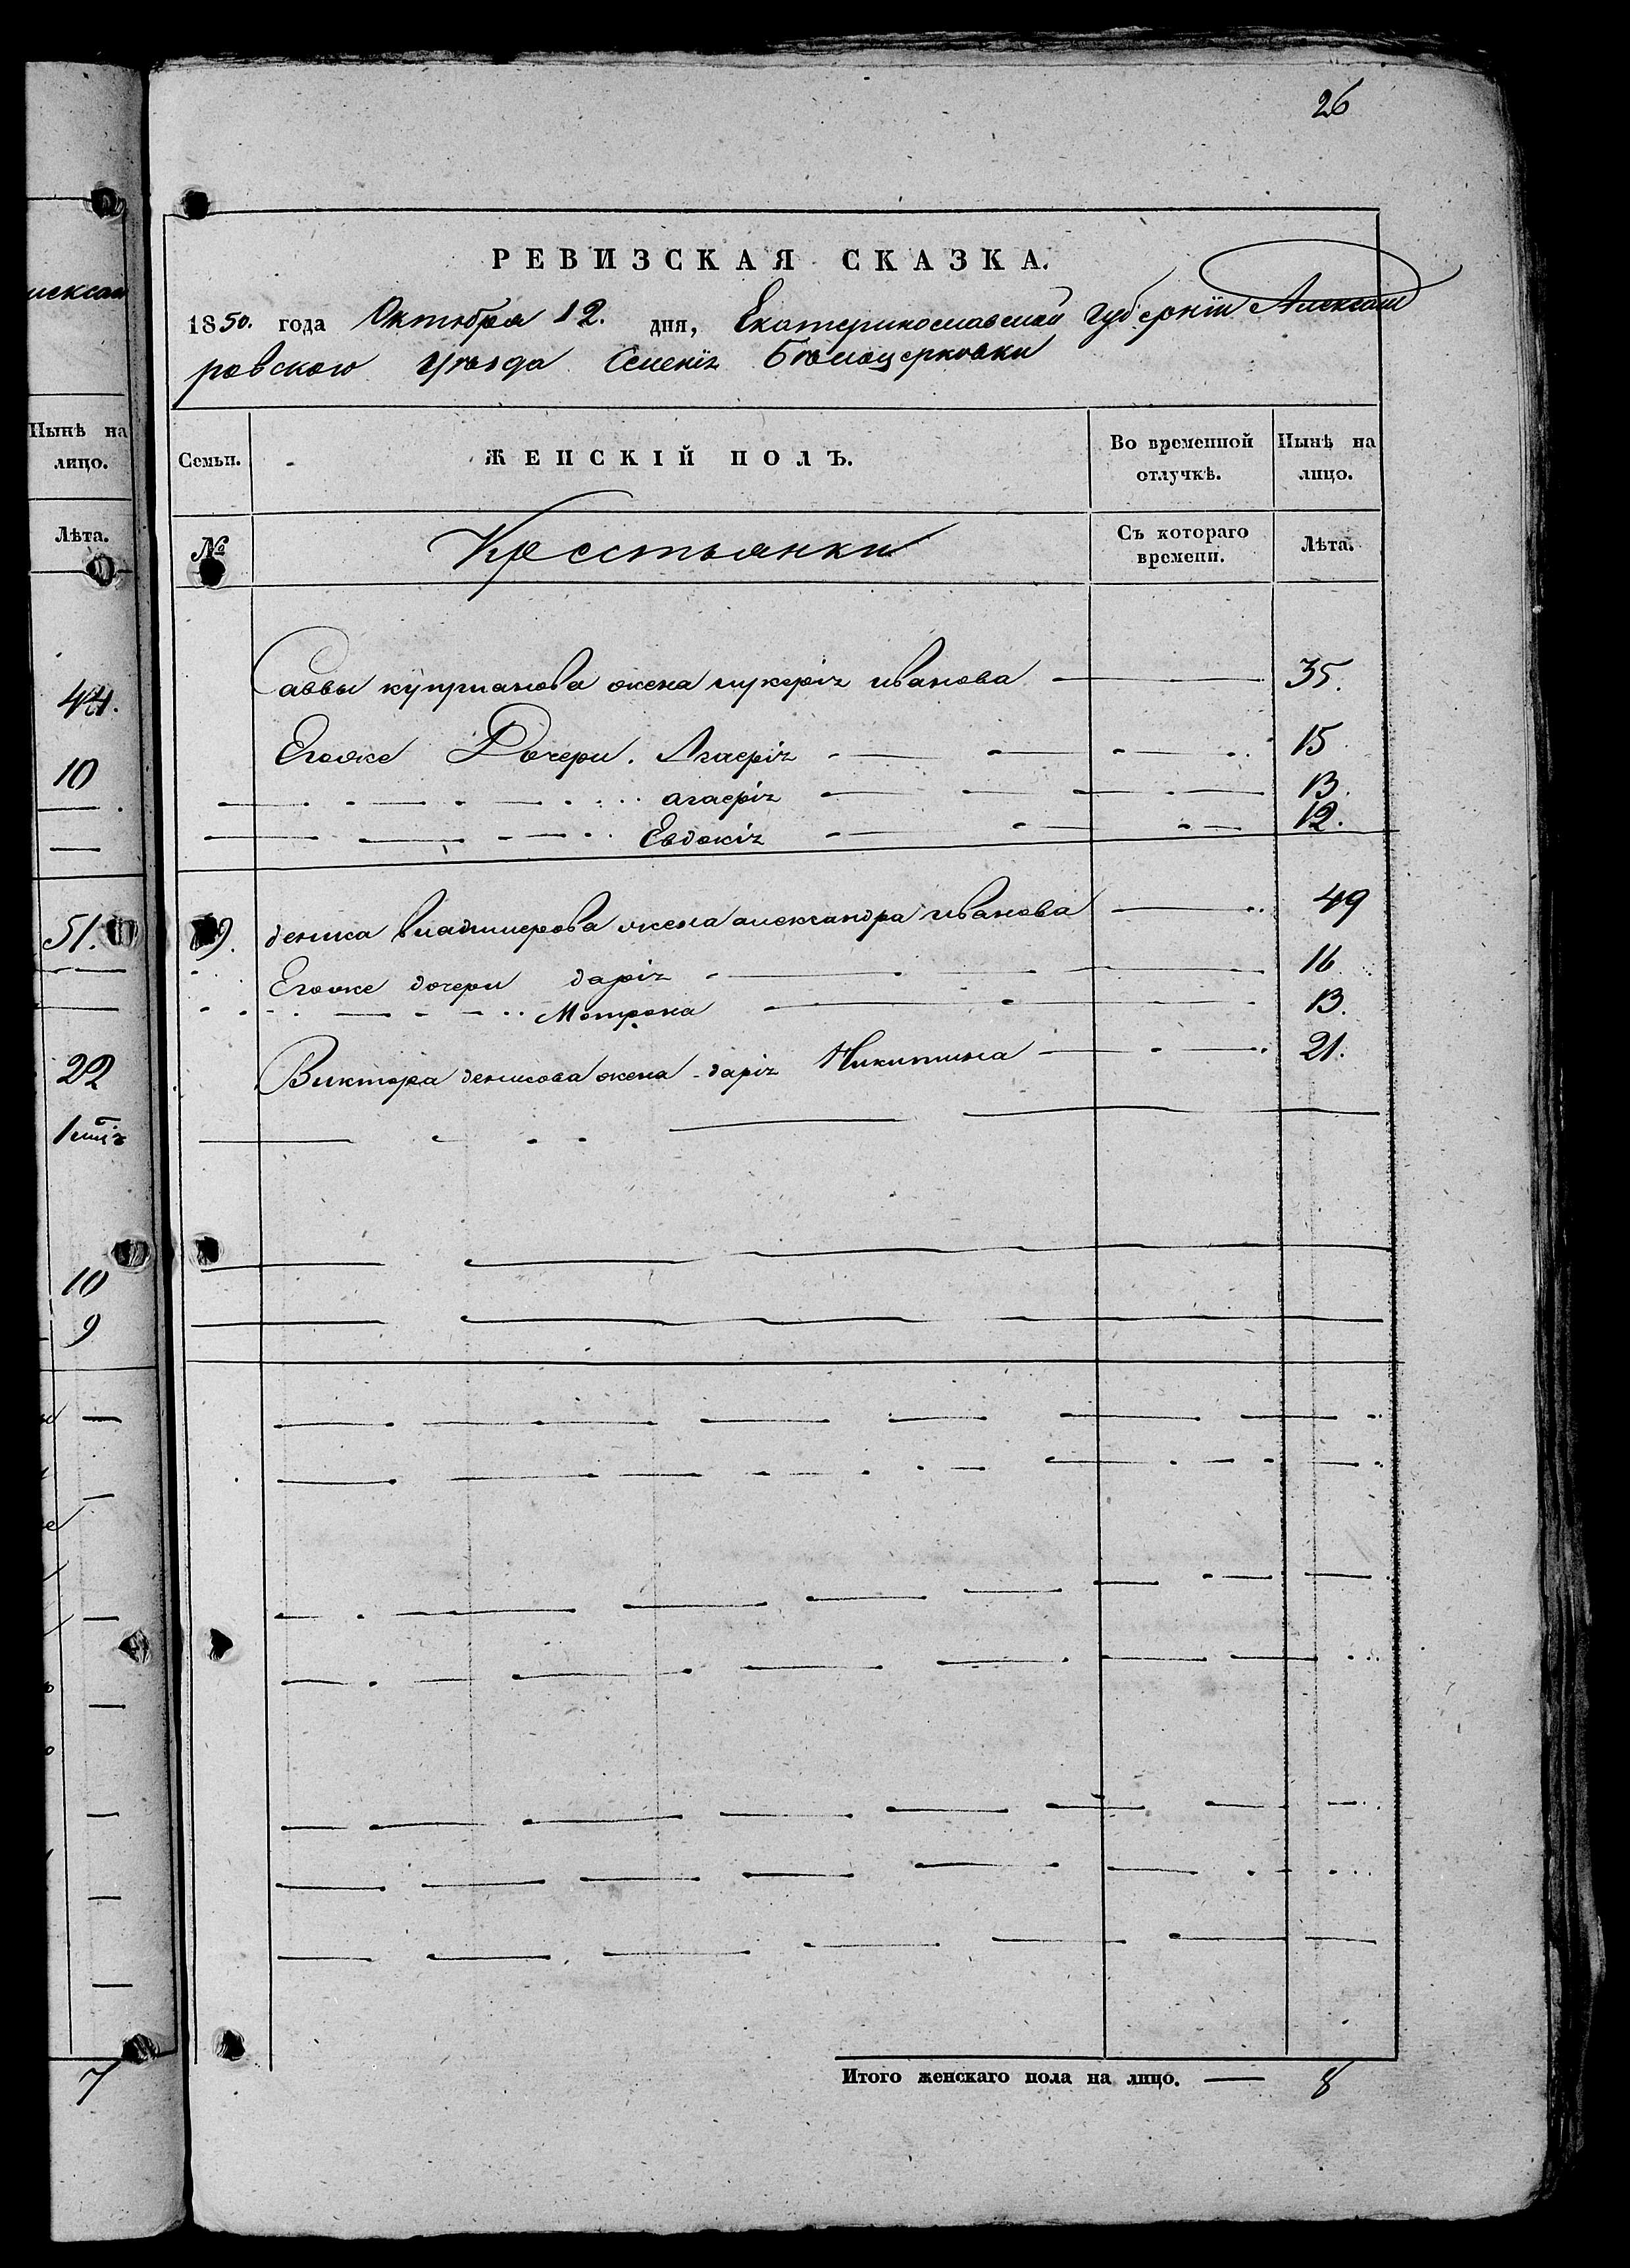 26
РЕВИЗСКАЯ СКАЗКА.
1850. года Октября 12. дня, Екатеринославской Губернїи Алексан
ровского Уѣзда Селенїя Бѣлоцерковки
Семьи.
ЖЕНСКІЙ ПОЛЪ.
Во временной отлучкѣ.
Нынѣ на лицо.
№
Крестьянки
Съ котораго времени.
Лѣта.
Саввы куприанова жена гликерія иванова 35.
Егоже Дочери. Агаерія 15
агаерія 13.
Евдокія 12.
9. дениса владимерова жена александра иванова 49
Егоже дочери дарія 16
Мотрона 13.
Виктора денисова жена дарія Никитина 21.
Итого женскаго пола на лицо. 8
лексан
Нынѣ на
лицо.
Лѣта.
44.
10
51.
22
10
9
7